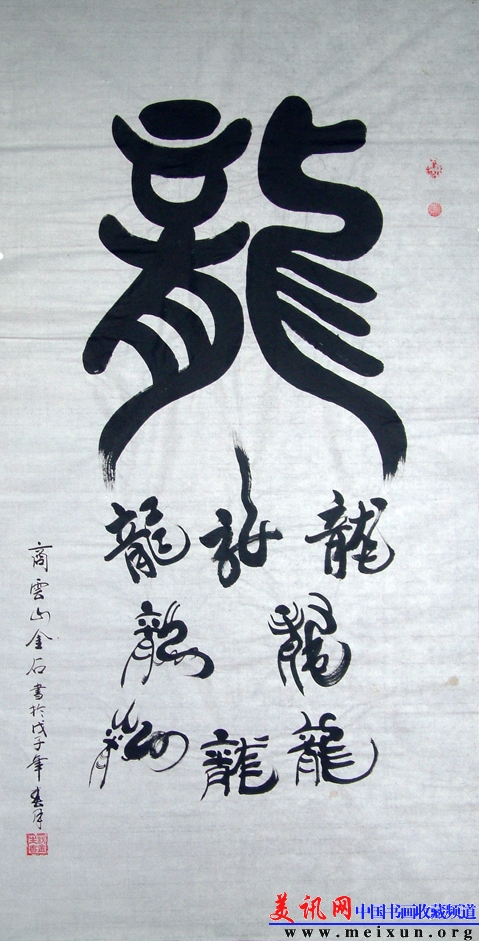 龍
龍 龍 龍
龍 龍
龍 龍 龍
商雲山金石書於戊子年春月
美讯网 中国书画收藏频道
www.meixun.org